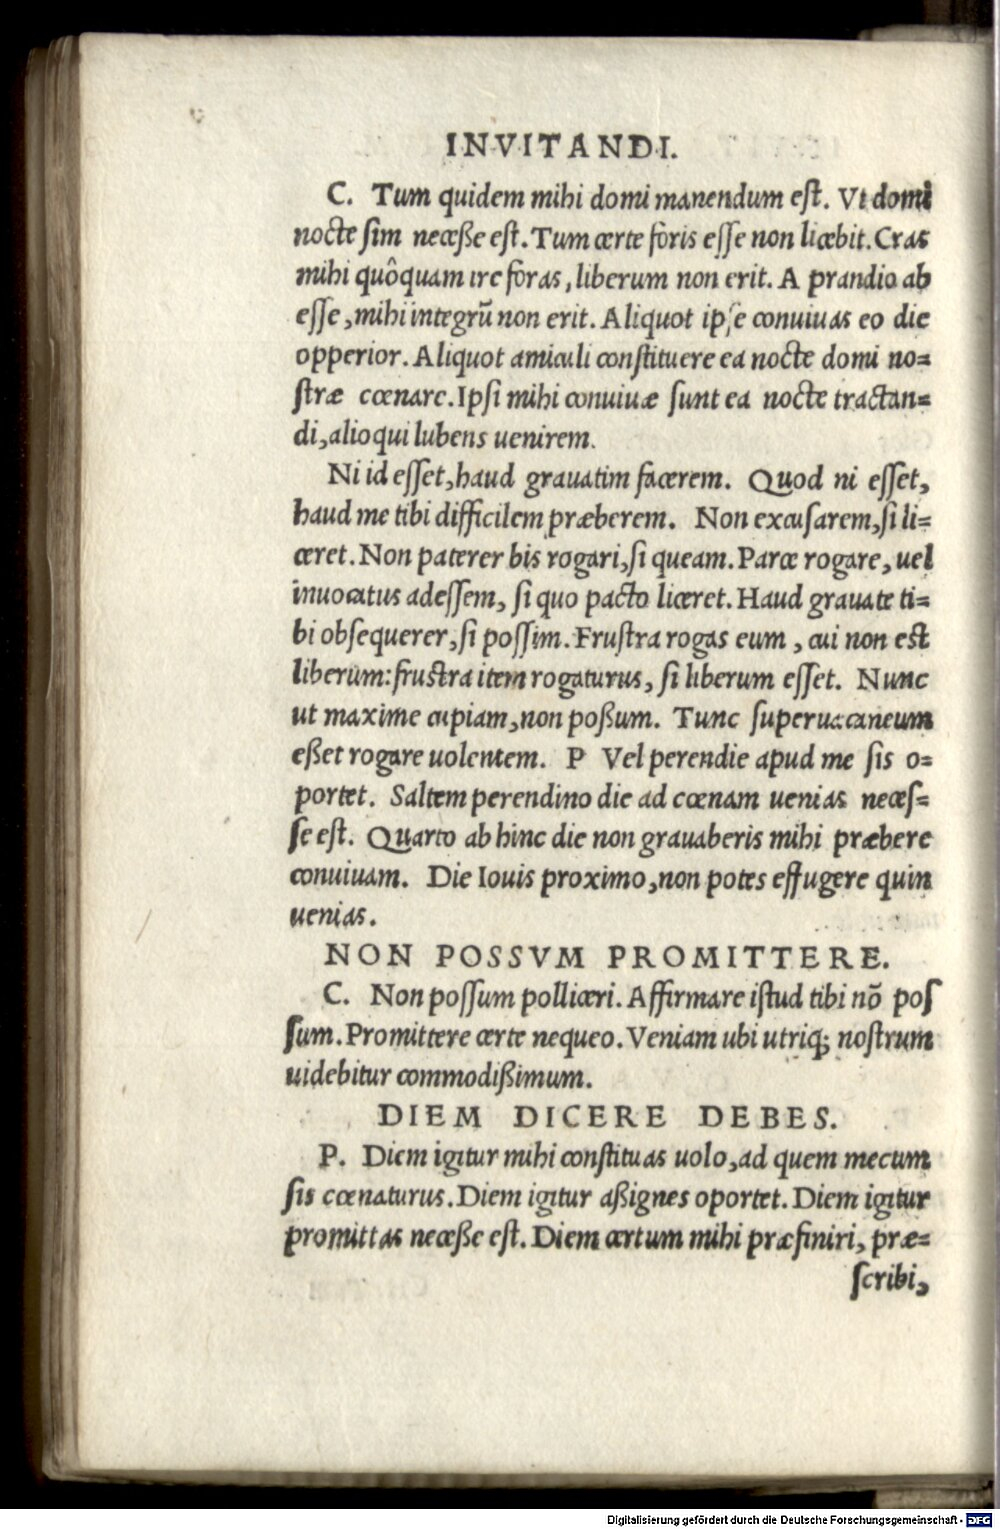 INVITANDI.
C. Tum quidem mihi domi manendum est. Vt domi
nocte sim necesse est. Tum certe foris esse non licebit. Cras
mihi quôquam ire foras, liberum non erit. A prandio ab
esse, mihi integrū non erit. Aliquot ipse conuiuas eo die
opperior. Aliquot amiculi constituere ea nocte domi no=
stræ cœnare. Ipsi mihi conuiuæ sunt ea nocte tractan=
di, alioqui lubens uenirem.
Ni id esset, haud grauatim facerem. Quod ni esset,
haud me tibi difficilem præberem. Non excusarem, si li=
ceret. Non paterer bis rogari, si queam. Parce rogare, uel
inuocatus adessem, si quo pacto liceret. Haud grauate ti=
bi obsequerer, si possim. Frustra rogas eum, cui non est
liberum: frustra item rogaturus, si liberum esset. Nunc
ut maxime cupiam, non poßum. Tunc superuacaneum
eßet rogare uolentem. P Vel perendie apud me sis o=
portet. Saltem perendino die ad cœnam uenias neces=
se est. Quarto ab hinc die non grauaberis mihi præbere
conuiuam. Die Iouis proximo, non potes effugere quin
uenias.
NON POSSVM PROMITTERE.
C. Non possum polliceri. Affirmare istud tibi nō pos
sum. Promittere certe nequeo. Veniam ubi utriq; nostrum
uidebitur commodißimum.
DIEM DICERE DEBES.
P. Diem igitur mihi constituas uolo, ad quem mecum
sis cœnaturus. Diem igitur aßignes oportet. Diem igitur
promittas neceße est. Diem certum mihi præfiniri, præ=
scribi,
Digitalisierung gefördert durch die Deutsche Forschungsgemeinschaft - DFG